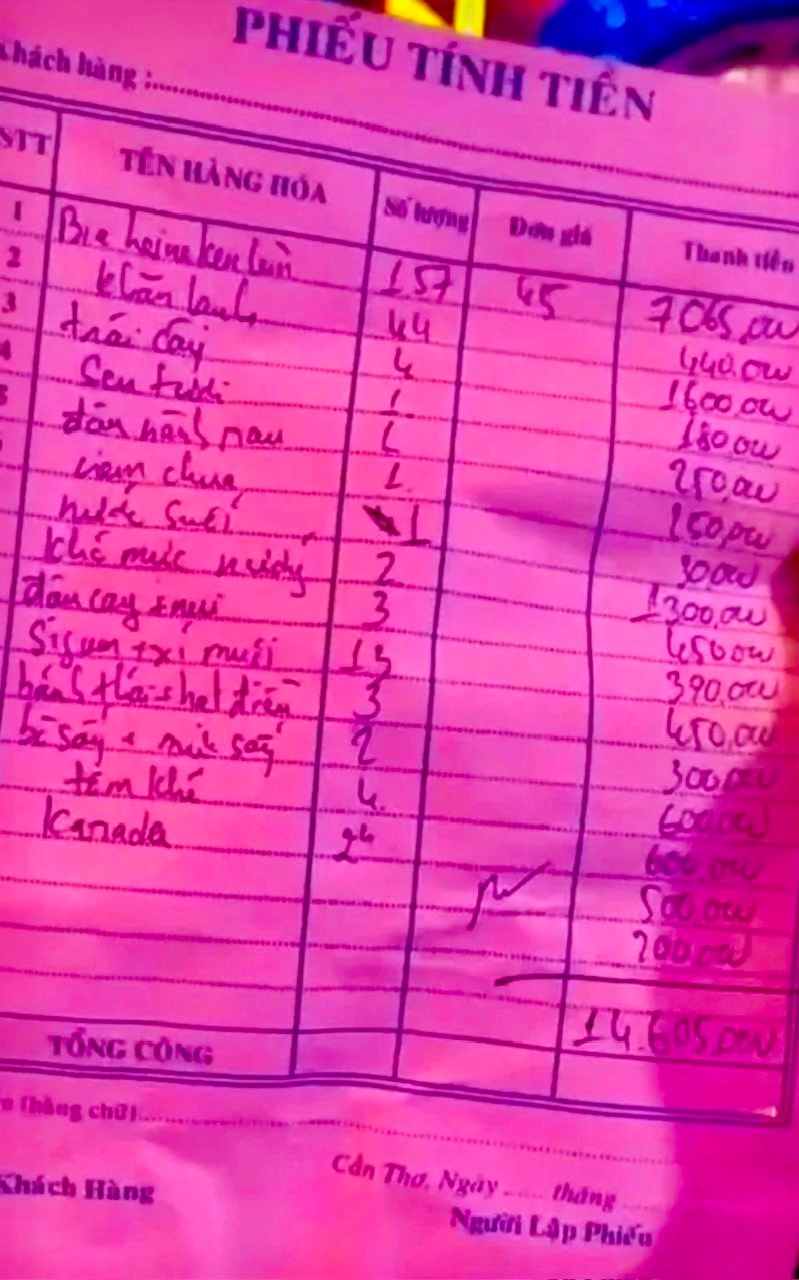 PHIẾU TÍNH TIỀN
Khách hàng :
STT TÊN HÀNG HÓA Số lượng Đơn giá Thành tiền
1 Bia heineken lùn 157 45 7065,000
2 khăn lạnh 44 440.000
3 trái cây 4 1600.000
4 Sen tươi 1 180.000
5 1 250,000
nem chua 1 250,000
nước suối 1 30.000
khô mực nướng 2 1300,000
3 450.000
xí muội 13 390,000
3 450,000
bò sấy + mực sấy 2 300.000
tôm khô 4 600.000
Kanada 24 600,000
500.000
200.000
14.605,000
TỔNG CỘNG
(bằng chữ)
Cần Thơ, Ngày ..... tháng ....
Khách Hàng Người Lập Phiếu